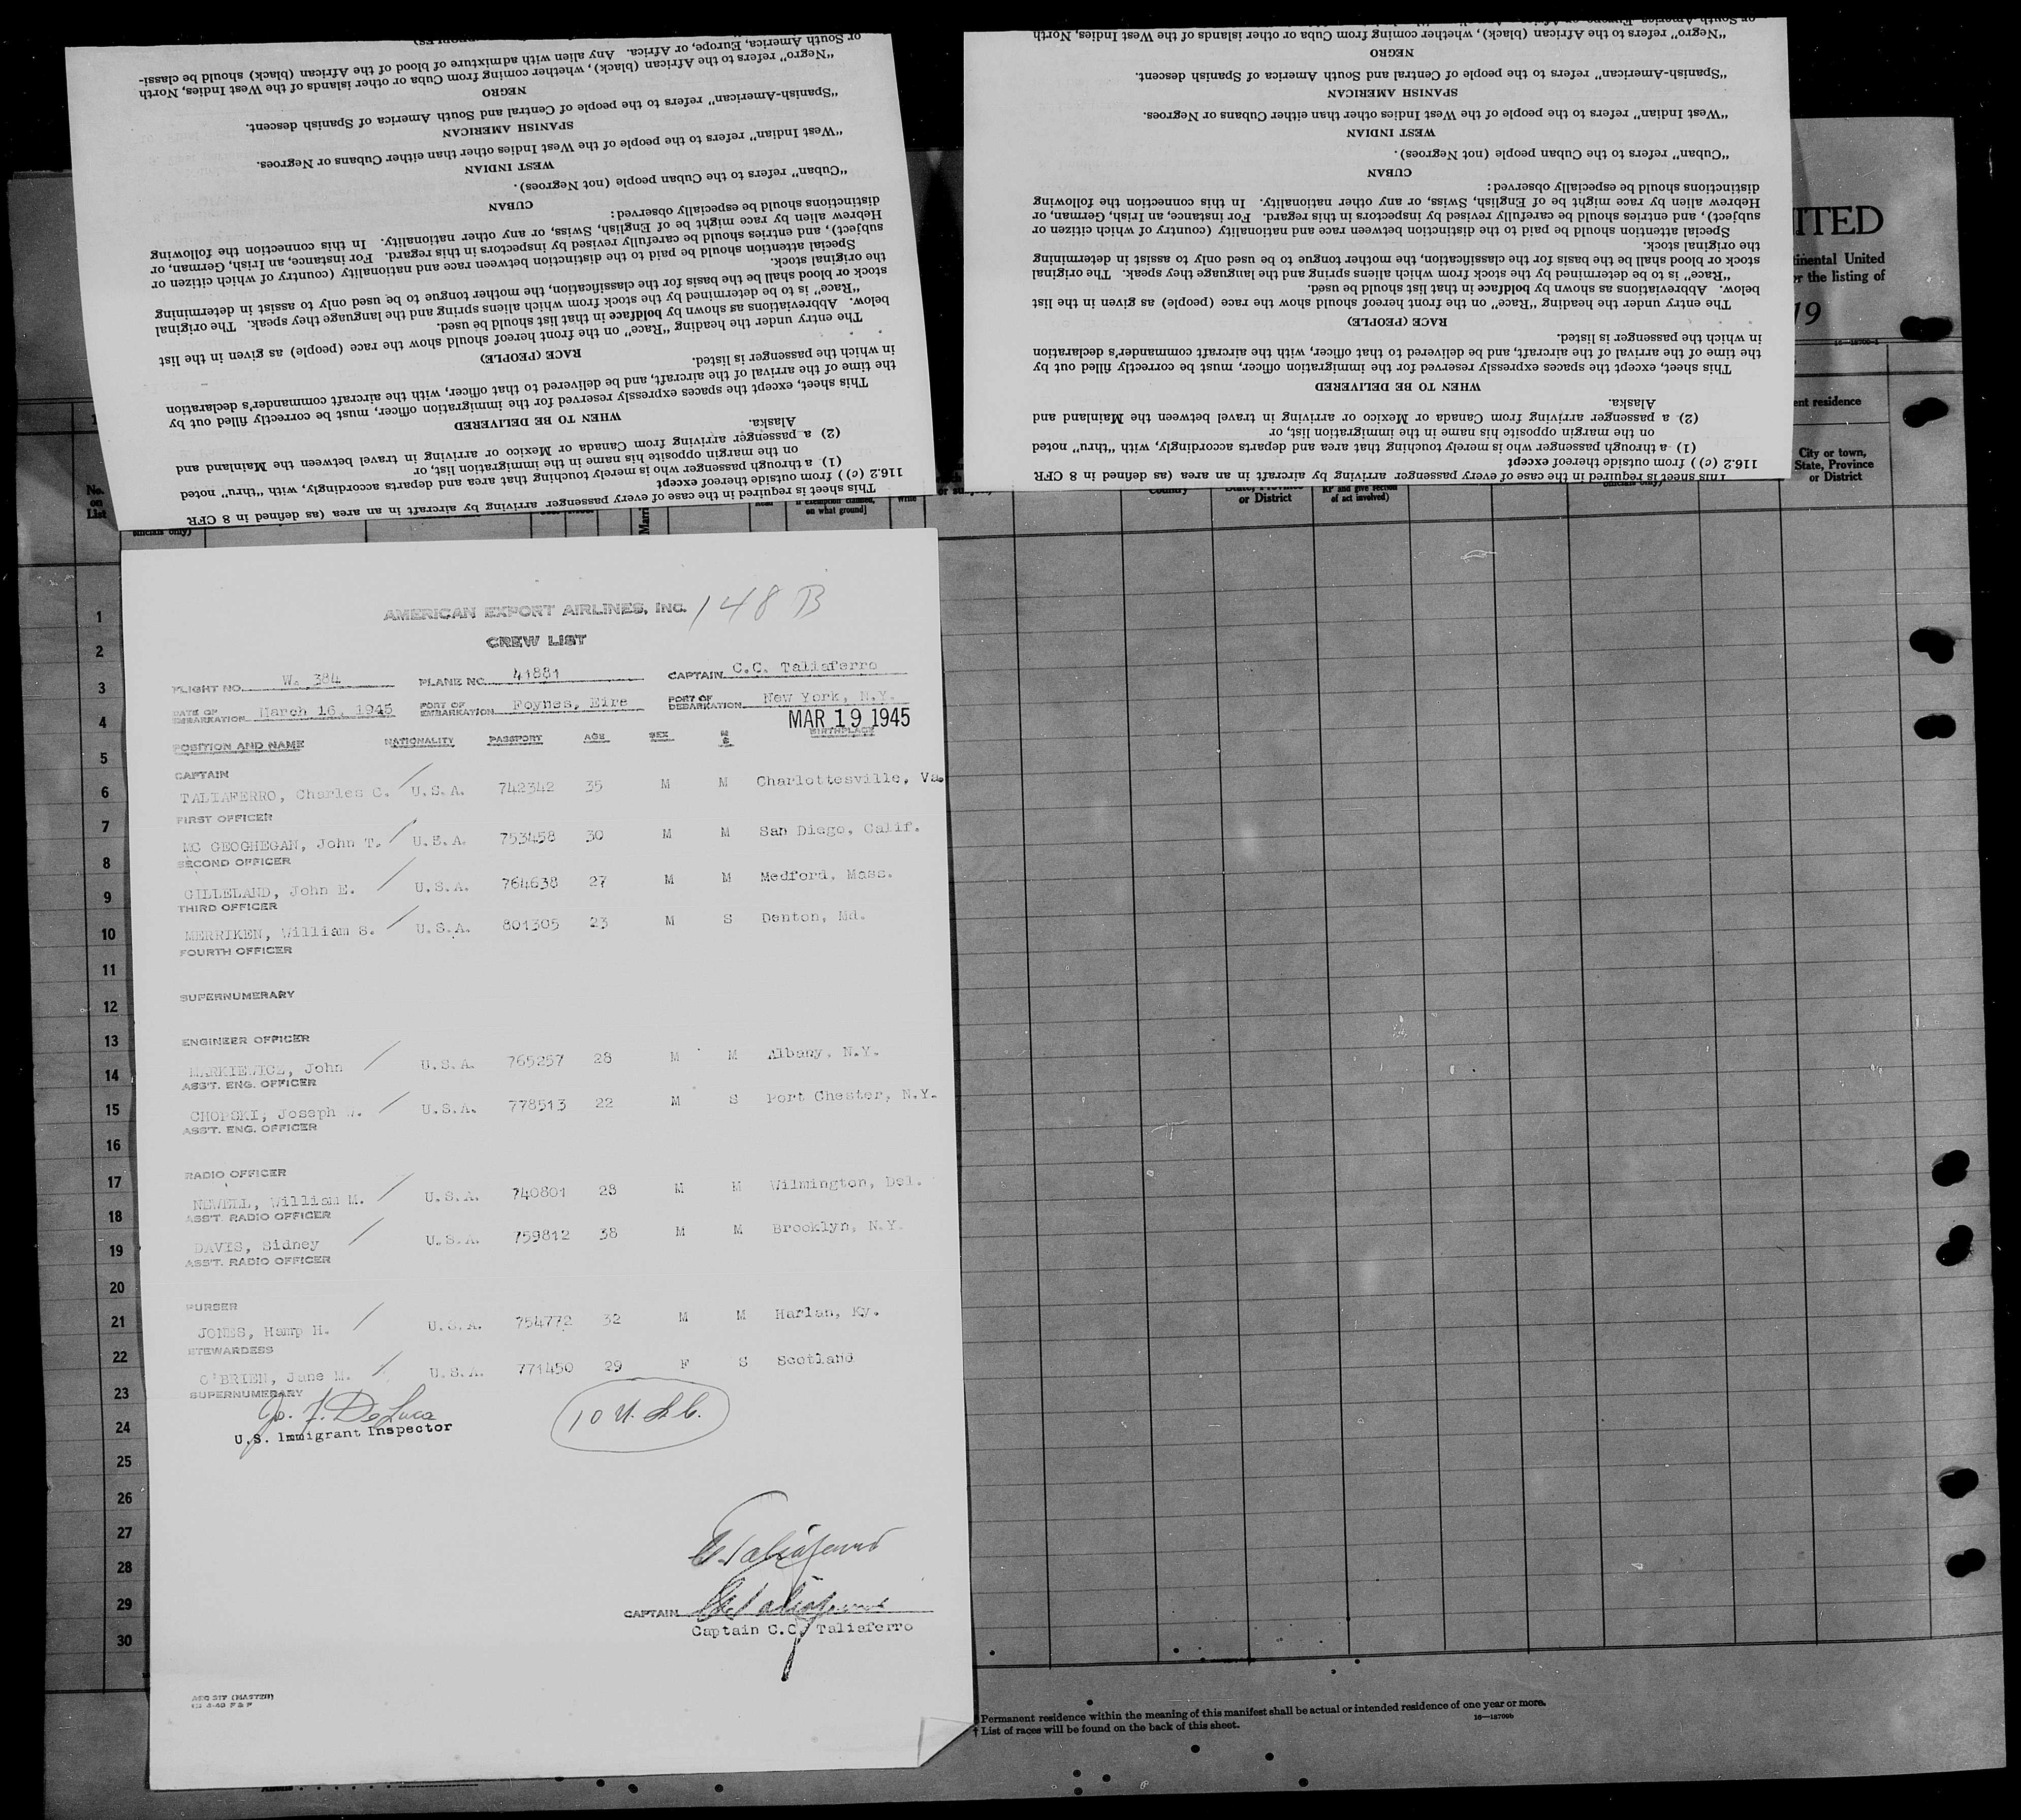 This sheet is required in the case of every passenger arriving by aircraft in an area (as defined in 8 CFR
116.2 (c)) from outside thereof except
(1) a through passenger who is merely touching that area and departs accordingly, with "thru" noted
on the margin opposite his name in the immigration list, or
(2) a passenger arriving from Canada or Mexico or arriving in travel between the Mainland and
Alaska.
WHEN TO BE DELIVERED
This sheet, except the spaces expressly reserved for the immigration officer, must be correctly filled out by
the time of the arrival of the aircraft, and be delivered to that officer, with the aircraft commander's declaration
in which the passenger is listed.
RACE (PEOPLE)
The entry under the heading "Race" on the front hereof should show the race (people) as given in the list
below. Abbreviations as shown by boldface in that list should be used.
"Race" is to be determined by the stock from which aliens spring and the language they speak. The original
stock or blood shall be the basis for the classification, the mother tongue to be used only to assist in determining
the original stock.
Special attention should be paid to the distinction between race and nationality (country of which citizen or
subject), and entries should be carefully revised by inspectors in this regard. For instance, an Irish, German, or
Hebrew alien by race might be of English, Swiss, or any other nationality. In this connection the following
distinctions should be especially observed:
CUBAN
"Cuban" refers to the Cuban people (not Negroes).
WEST INDIAN
"West Indian" refers to the people of the West Indies other than either Cubans or Negroes.
SPANISH AMERICAN
"Spanish-American" refers to the people of Central and South America of Spanish descent.
NEGRO
"Negro" refers to the African (black), whether coming from Cuba or other islands of the West Indies, North
or South America, Europe, or Africa. Any alien with admixture of blood of the African (black) should be classi-
This sheet is required in the case of every passenger arriving by aircraft in an area (as defined in 8 CFR
116.2 (c)) from outside thereof except
(1) a through passenger who is merely touching that area and departs accordingly, with "thru" noted
on the margin opposite his name in the immigration list, or
(2) a passenger arriving from Canada or Mexico or arriving in travel between the Mainland and
Alaska.
WHEN TO BE DELIVERED
This sheet, except the spaces expressly reserved for the immigration officer, must be correctly filled out by
the time of the arrival of the aircraft, and be delivered to that officer, with the aircraft commander's declaration
in which the passenger is listed.
RACE (PEOPLE)
The entry under the heading "Race" on the front hereof should show the race (people) as given in the list
below. Abbreviations as shown by boldface in that list should be used.
"Race" is to be determined by the stock from which aliens spring and the language they speak. The original
stock or blood shall be the basis for the classification, the mother tongue to be used only to assist in determining
the original stock.
Special attention should be paid to the distinction between race and nationality (country of which citizen or
subject), and entries should be carefully revised by inspectors in this regard. For instance, an Irish, German, or
Hebrew alien by race might be of English, Swiss, or any other nationality. In this connection the following
distinctions should be especially observed:
CUBAN
"Cuban" refers to the Cuban people (not Negroes).
WEST INDIAN
"West Indian" refers to the people of the West Indies other than either Cubans or Negroes.
SPANISH AMERICAN
"Spanish-American" refers to the people of Central and South America of Spanish descent.
NEGRO
"Negro" refers to the African (black), whether coming from Cuba or other islands of the West Indies, North
ITED
tinental United
r the listing of
19
ent residence
City or town,
State, Province
or District
No.
on
List
officials only)
on what ground]
Country
or District
RP and give section
of act involved)
AMERICAN EXPORT AIRLINES, INC. 148 B
CREW LIST
FLIGHT NO. W. 384 PLANE NO. 41881 CAPTAIN C.C. Taliaferro
DATE OF EMBARKATION March 16, 1945 PORT OF EMBARKATION Foynes, Eire PORT OF DEBARKATION New York, N.Y.
MAR 19 1945
POSITION AND NAME NATIONALITY PASSPORT AGE SEX M S BIRTHPLACE
CAPTAIN
TALIAFERRO, Charles C. / U.S.A. 742342 35 M M Charlottesville, Va.
FIRST OFFICER
MC GEOGHEGAN, John T. / U.S.A. 753458 30 M M San Diego, Calif.
SECOND OFFICER
GILLELAND, John E. / U.S.A. 764638 27 M M Medford, Mass.
THIRD OFFICER
MERRIKEN, William S. / U.S.A. 801305 23 M S Denton, Md.
FOURTH OFFICER
SUPERNUMERARY
ENGINEER OFFICER
MARKIEWICZ, John / U.S.A. 765257 28 M M Albany, N.Y.
ASS'T. ENG. OFFICER
CHOPSKI, Joseph / U.S.A. 778513 22 M S Port Chester, N.Y.
ASS'T. ENG. OFFICER
RADIO OFFICER
NEWELL, William M. / U.S.A. 740801 28 M M Wilmington, Del.
ASS'T. RADIO OFFICER
DAVIS, Sidney / U.S.A. 759812 38 M M Brooklyn, N.Y.
ASS'T. RADIO OFFICER
PURSER
JONES, Hamp H. / U.S.A. 754772 32 M M Harlan, Ky.
STEWARDESS
O'BRIEN, Jane M. / U.S.A. 771450 29 F S Scotland
SUPERNUMERARY
Jo. F. DeLuca
U.S. Immigrant Inspector
10 U.S.C.
C Taliaferro
CAPTAIN CC Taliaferro
Captain C.C. Taliaferro
1
2
3
4
5
6
7
8
9
10
11
12
13
14
15
16
17
18
19
20
21
22
23
24
25
26
27
28
29
30
Permanent residence within the meaning of this manifest shall be actual or intended residence of one year or more.
† List of races will be found on the back of this sheet.
16—18709b